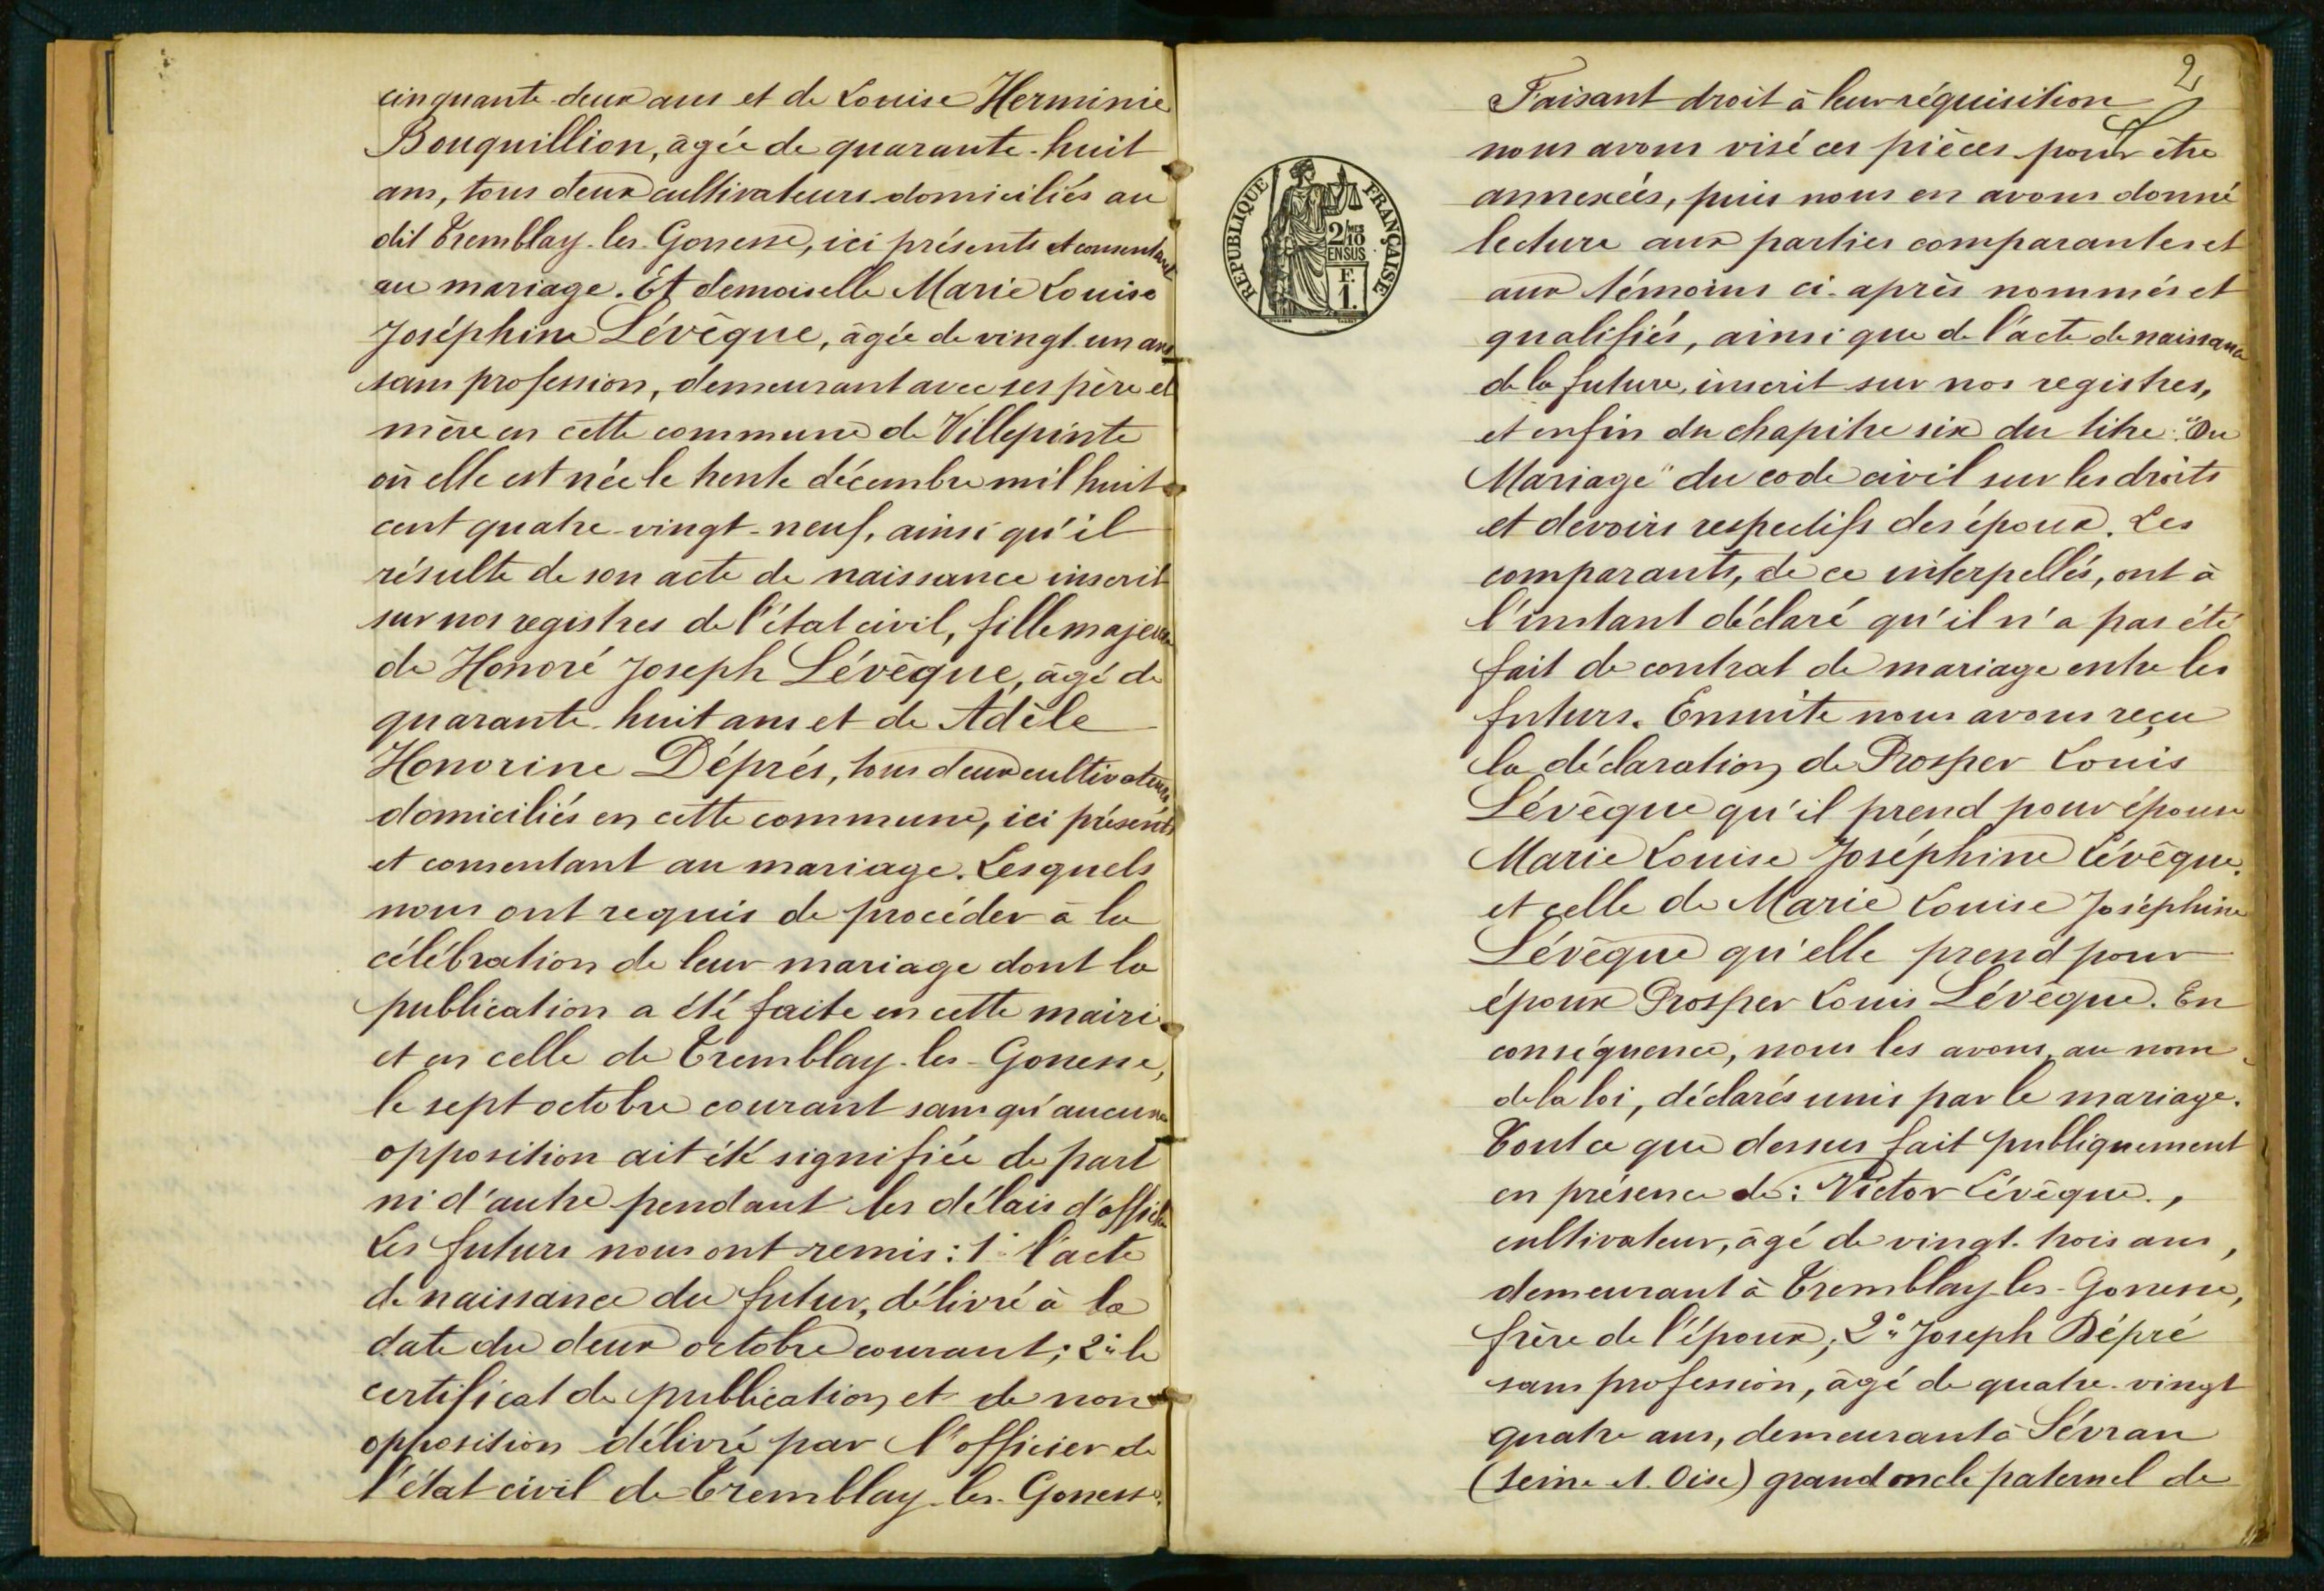 cinquante-deux ans et de Louise Herminie
Bouquillion, âgée de quarante-huit
ans, tous deux cultivateurs domiciliés au
dit Tremblay-les-Gonesse, ici présents et consentant
au mariage. Et demoiselle Marie Louise
Joséphine Lévêque, âgée de vingt un ans
sans profession, demeurant avec ses père et
mère en cette commune de Villepinte
où elle est née le trente décembre mil huit
cent quatre-vingt-neuf, ainsi qu'il
résulte de son acte de naissance inscrit
sur nos registres de l'état civil, fille majeure
de Honoré Joseph Lévêque, âgé de
quarante-huit ans et de Adèle
Honorine Déprés, tous deux cultivateurs
domiciliés en cette commune, ici présents
et consentant au mariage. Lesquels
nous ont requis de procéder à la
célébration de leur mariage dont la
publication a été faite en cette mairie
et en celle de Tremblay-les-Gonesse,
le sept octobre courant sans qu'aucune
opposition ait été signifiée de part
ni d'autre pendant les délais d'affiche
Les futurs nous ont remis: 1° l'acte
de naissance du futur, délivré à la
date du deux octobre courant; 2° le
certificat de publication et de non
opposition délivré par l'officier de
l'état civil de Tremblay-les-Gonesse.
2
Faisant droit à leur réquisition
nous avons visé ces pièces pour être
annexées, puis nous en avons donné
lecture aux parties comparantes et
aux témoins ci-après nommés et
qualifiés, ainsi que de l'acte de naissance
de la future, inscrit sur nos registres,
et enfin du chapitre six du titre "Du
Mariage" du code civil sur les droits
et devoirs respectifs des époux. Les
comparants, de ce interpellés, ont à
l'instant déclaré qu'il n'a pas été
fait de contrat de mariage entre les
futurs. Ensuite nous avons reçu
la déclaration de Prosper Louis
Lévêque qu'il prend pour épouse
Marie Louise Joséphine Lévêque.
et celle de Marie Louise Joséphine
Lévêque qu'elle prend pour
époux Prosper Louis Lévêque. En
conséquence, nous les avons, au nom
de la loi, déclarés unis par le mariage.
Tout ce que dessus fait publiquement
en présence de: Victor Lévêque.,
cultivateur, âgé de vingt-trois ans,
demeurant à Tremblay-les-Gonesse,
frère de l'époux; 2° Joseph Dépré
sans profession, âgé de quatre-vingt
quatre ans, demeurant à Sévran
(Seine-et-Oise) grand oncle paternel de
RÉPUBLIQUE FRANÇAISE
2/10 MES
EN SUS
F.
1.